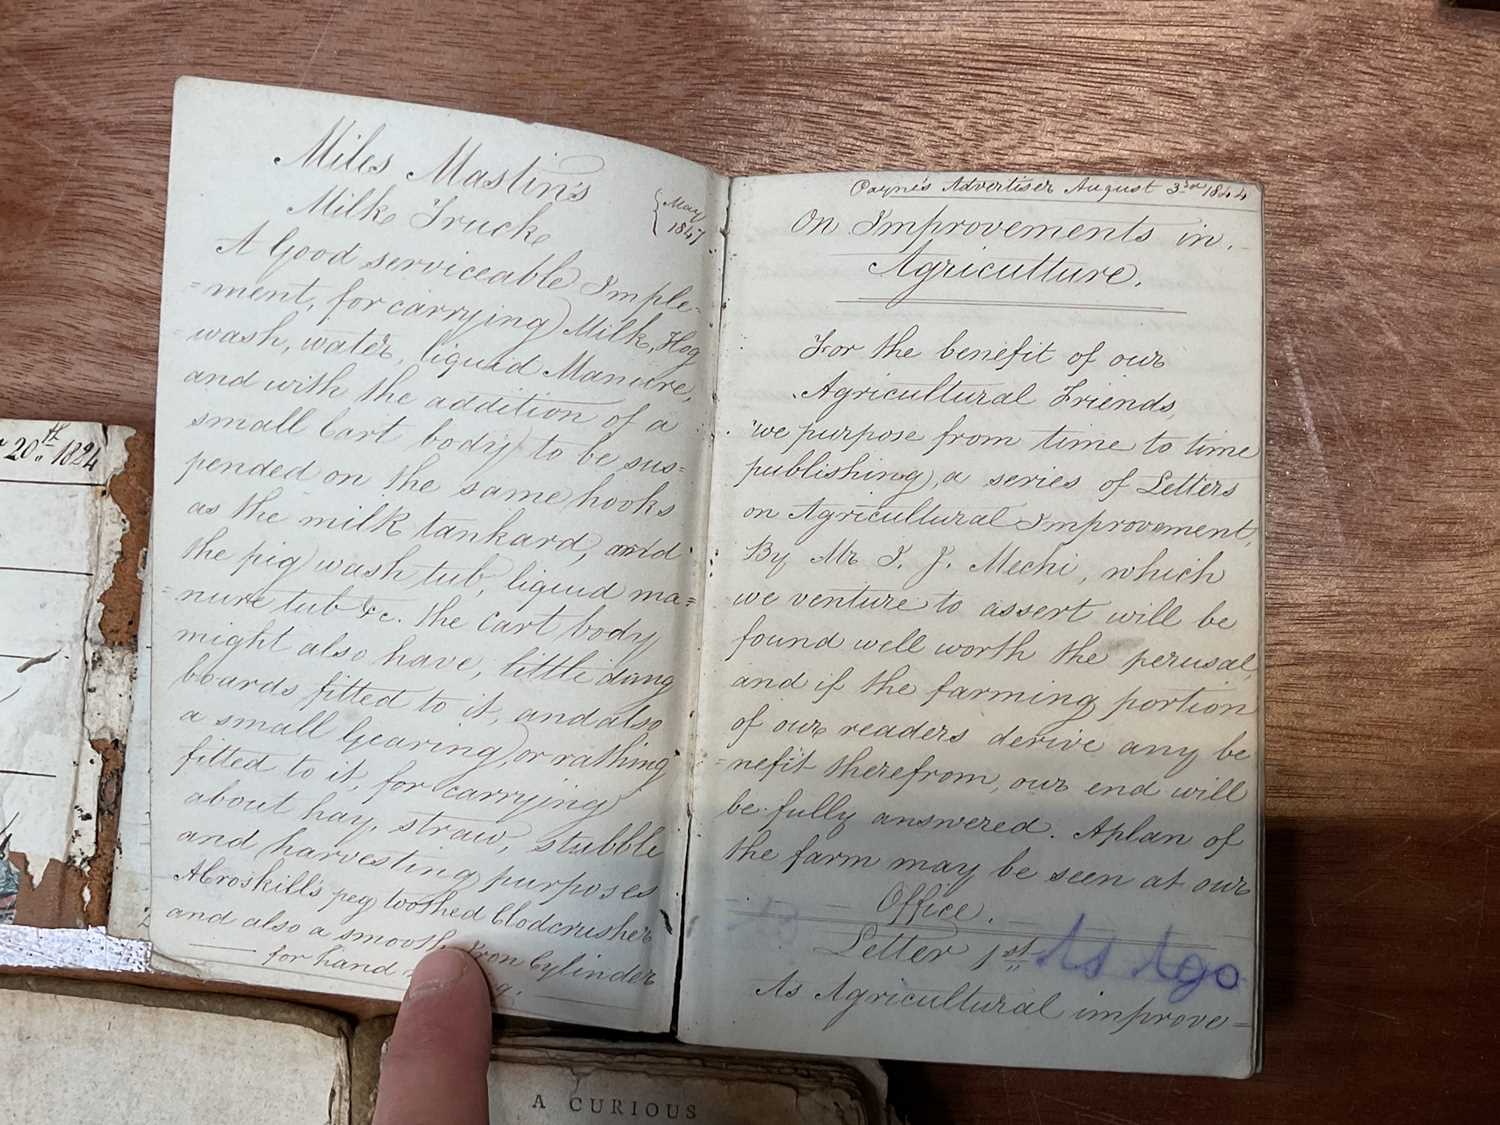 Miles Mastin's
Milk Truck
{May
1847
A Good serviceable Imple-
=ment, for carrying Milk, Hog
=wash, water, liquid Manure,
and with the addition of a
small Cart body to be sus=
pended on the same hooks
as the milk tankard, and
the pig wash tub, liquid ma=
=nure tub &c. the Cart body
might also have, little dung
boards fitted to it, and also
a small Gearing or rathing
fitted to it, for carrying
about hay, straw, stubble
and harvesting purposes
A Croskill's peg toothed Clodcrusher
and also a smooth Iron Cylinder
for hand
Payne's Advertiser August 3rd 1844
On Improvements in
Agriculture.
For the benefit of our
Agricultural Friends
"we purpose from time to time
publishing, a series of Letters
on Agricultural Improvement,
By Mr I. J. Mechi, which
we venture to assert will be
found well worth the perusal,
and if the farming portion
of our readers derive any be
=nefit therefrom, our end will
be fully answered. A plan of
the farm may be seen at our
Office.
Letter 1st As Ago
As Agricultural improve=
r 20th 1824
A CURIOUS